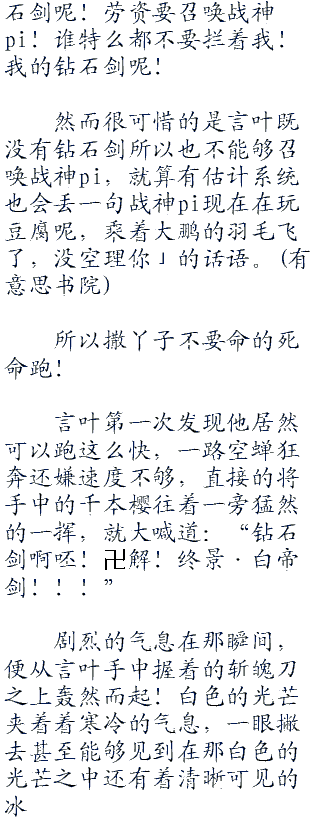 石剑呢！劳资要召唤战神
pi！谁特么都不要拦着我！
我的钻石剑呢！
然而很可惜的是言叶既
没有钻石剑所以也不能够召
唤战神pi，就算有估计系统
也会丢一句战神pi现在在玩
豆腐呢，乘着大鹏的羽毛飞
了，没空理你」的话语。（有
意思书院）
所以撒丫子不要命的死
命跑！
言叶第一次发现他居然
可以跑这么快，一路空蝉狂
奔还嫌速度不够，直接的将
手中的千本樱往着一旁猛然
的一挥，就大喊道：“钻石
剑啊呸！卍解！终景·白帝
剑！！！”
剧烈的气息在那瞬间，
便从言叶手中握着的斩魄刀
之上轰然而起！白色的光芒
夹着着寒冷的气息，一眼撇
去甚至能够见到在那白色的
光芒之中还有着清晰可见的
冰